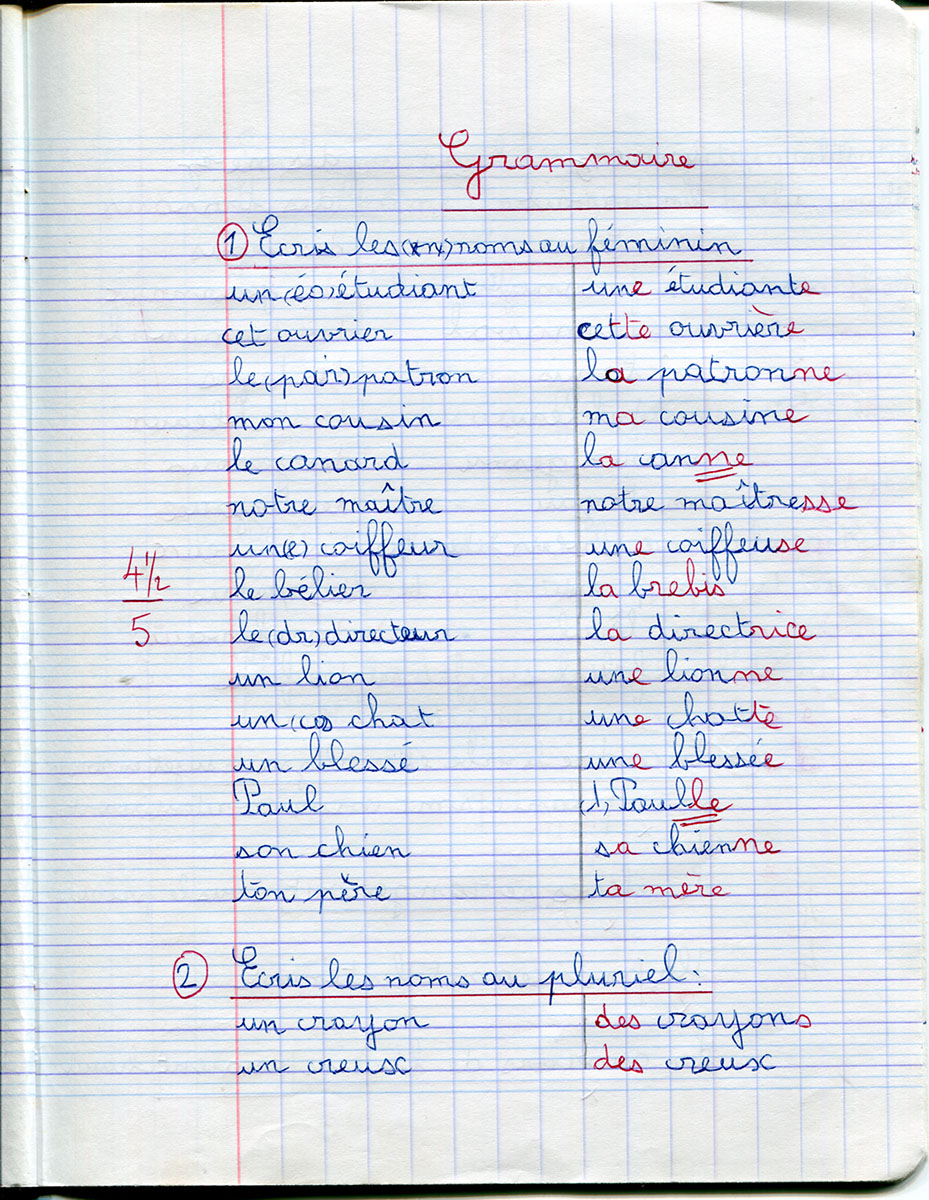 Grammaire
① Ecris les (xx) noms au féminin
un (éo) étudiant une étudiante
cet ouvrier cette ouvrière
le (pair) patron la patronne
mon cousin ma cousine
le canard la canne
notre maître notre maîtresse
un (e) coiffeur une coiffeuse
4 1/2
le bélier la brebis
5
le (dr) directeur la directrice
un lion une lionne
un chat une chatte
un blessé une blessée
Paul Paulle
son chien sa chienne
ton père ta mère
② Ecris les noms au pluriel :
un crayon des crayons
un creux des creux